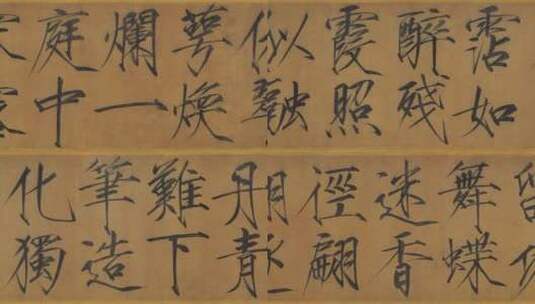 霑如
醉殘
霞照
似融
萼煥
爛一
庭中
舞蝶
迷香
徑翩
丹青
難下
筆造
化獨